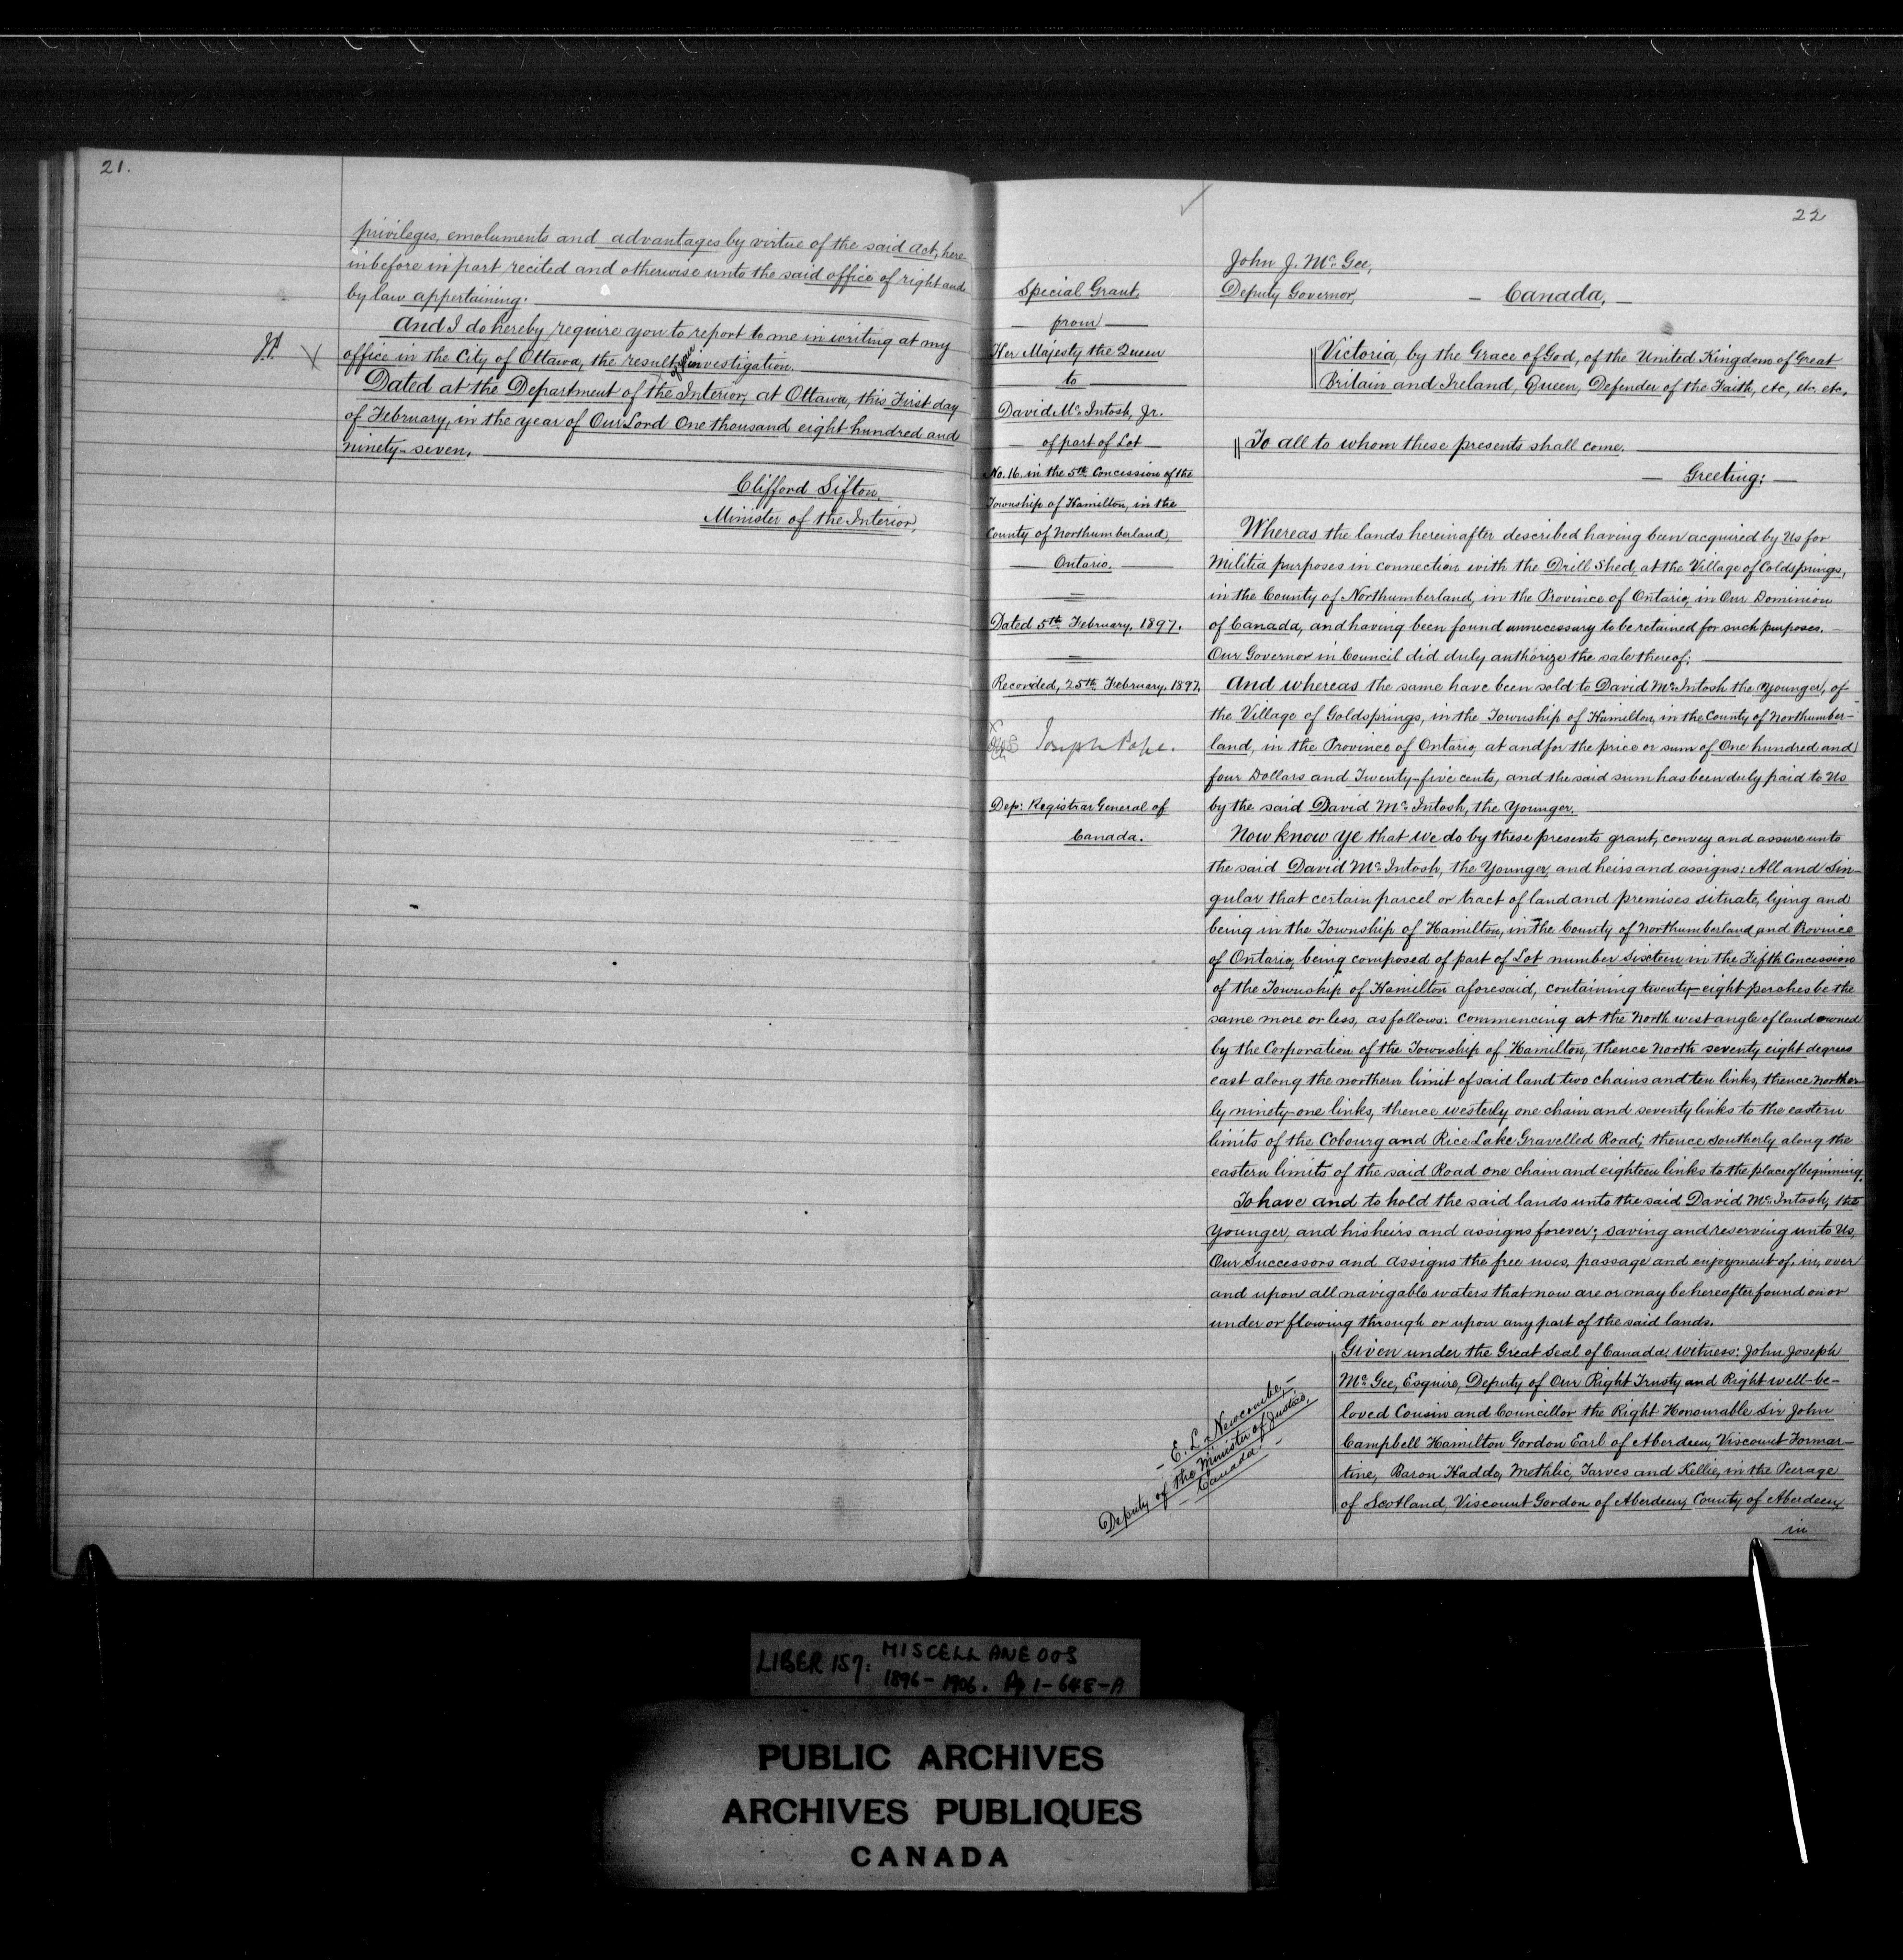 21.
privileges, emoluments and advantages by virtue of the said Act, here-
inbefore in part recited and otherwise unto the said office of right and
by law appertaining.
And I do hereby require you to report to me in writing at my
office in the City of Ottawa, the result of your investigation.
Dated at the Department of the Interior, at Ottawa, this First day
of February, in the year of Our Lord One thousand eight hundred and
ninety-seven.
Clifford Sifton,
Minister of the Interior,
22
Special Grant,
from
Her Majesty the Queen
to
David Mc. Intosh, Jr.
of part of Lot
No. 16. in the 5th Concession of the
Township of Hamilton, in the
County of Northumberland,
Ontario.
Dated 5th February, 1897.
Recorded, 25th February, 1897.
Joseph Pope.
Dep: Registrar General of
Canada.
John J. Mc. Gee,
Deputy Governor,
- Canada, -
Victoria, by the Grace of God, of the United Kingdom of Great
Britain and Ireland, Queen, Defender of the Faith, etc, etc. etc,
To all to whom these presents shall come.
- Greeting: -
Whereas the lands hereinafter described having been acquired by Us for
Militia purposes in connection with the Drill Shed, at the Village of Coldsprings,
in the County of Northumberland, in the Province of Ontario, in Our Dominion
of Canada, and having been found unnecessary to be retained for such purposes.
Our Governor in Council did duly authorize the sale thereof;
And whereas the same have been sold to David Mc. Intosh the Younger, of
the Village of Goldsprings, in the Township of Hamilton, in the County of Northumber-
land, in the Province of Ontario, at and for the price or sum of One hundred and
four Dollars and Twenty-five cents, and the said sum has been duly paid to Us
by the said David Mc. Intosh, the Younger.
Now know Ye that we do by these presents grant, convey and assure unto
the said David Mc. Intosh, the Younger, and heirs and assigns: All and Sin-
gular that certain parcel or tract of land and premises situate, lying and
being in the Township of Hamilton, in the County of Northumberland, and Province
of Ontario, being composed of part of Lot number sixteen in the Fifth Concession
of the Township of Hamilton aforesaid, containing twenty-eight perches be the
same more or less, as follows: commencing at the North west angle of land owned
by the Corporation of the Township of Hamilton, thence North seventy eight degrees
east along the northern limit of said land two chains and ten links, thence norther-
ly ninety-one links, thence westerly one chain and seventy links to the eastern
limits of the Cobourg and Rice Lake Gravelled Road; thence southerly along the
eastern limits of the said Road one chain and eighteen links to the place of beginning.
To have and to hold the said lands unto the said David Mc. Intosh, the
Younger, and his heirs and assigns forever; saving and reserving unto Us,
Our Successors and Assigns the free uses, passage and enjoyment of, in, over
and upon all navigable waters that now are or may be hereafter found on or
under or flowing through or upon any part of the said lands.
Given under the Great Seal of Canada: witness: John Joseph
Mc. Gee, Esquire, Deputy of Our Right Trusty and Right well-be-
loved Cousin and Councillor the Right Honourable Sir John
Campbell Hamilton Gordon Earl of Aberdeen, Viscount Formar-
tine, Baron Haddo, Methlic, Tarves and Kellie, in the Peerage
of Scotland, Viscount Gordon of Aberdeen, County of Aberdeen,
in
- E. L. Newcombe, -
Deputy of the Minister of Justice,
- Canada. -
LIBER 157: MISCELLANEOUS
1896-1906. Pp 1-648-A
PUBLIC ARCHIVES
ARCHIVES PUBLIQUES
CANADA